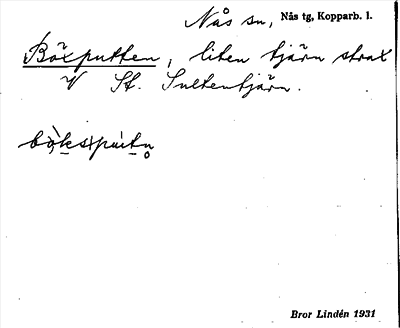 Nås sn, Nås tg, Kopparb. l.
Böxputten, liten tjärn strax
V St. Sultentjärn.
Bror Lindén 1931